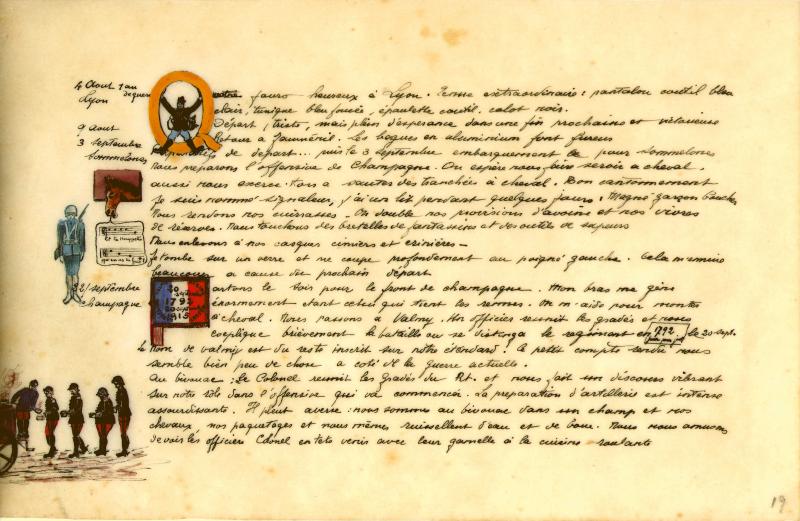 4 Août 1 an
de guerre
Lyon
Quatre jours heureux à Lyon. Tenue extraordinaire : pantalon coutil bleu
clair, tunique bleu foncée, épaulette coutil. calot noir.
9 août
Départ, triste, mais plein d'esperance dans une fin prochaine et victorieuse
Retour a Jauménil. Les bagues en aluminium font fureur
3 septembre
Sommelonne
Préparatifs de depart... puis le 3 septembre embarquement pour Sommelonne
Nous preparons l'offensive de Champagne. On espère nous faire servir a cheval.
aussi nous exerce-t-on a sauter des tranchées à cheval. Bon cantonnement
Je suis nommé signaleur, j'ai un lit pendant quelques jours : Magno garçon boucher
Nous rendons nos cuirasses. On double nos provisions d'avoine et nos vivres
de réserve. Nous touchons des bretelles de fantassins et des outils de sapeurs
Nous enlevons à nos casques cimiers et crinières —
Je tombe sur un verre et me coupe profondement au poignet gauche. Cela m'ennuie
beaucoup a cause du prochain départ
21 septembre
champagne
Partons le soir pour le front de champagne. Mon bras me gène
énormement etant celui qui tient les rennes. On m'aide pour monter
à cheval. Nous passons a Valmy. Un officier reunit les gradés et nous
explique brièvement la bataille ou se distingua le regiment en 1792 le 20 sept.
20 septembre
1792
20 sept
1915
le Nom de valmy est du reste inscrit sur notre étendard. Ce petit compte rendu nous
semble bien peu de chose a coté de la guerre actuelle.
Au bivouac : Le Colonel reunit les gradés du Rt. et nous fait un discours vibrant
sur notre rôle dans l'offensive qui va commencer. La preparation d'artillerie est intense
assourdissante. Il pleut averse : nous sommes au bivouac dans un champ et nos
chevaux, nos paquetages et nous mêmes ruissellent d'eau et de boue. Nous nous amusons
de voir les officiers Colonel en tete venir avec leur gamelle à la cuisine roulante
19